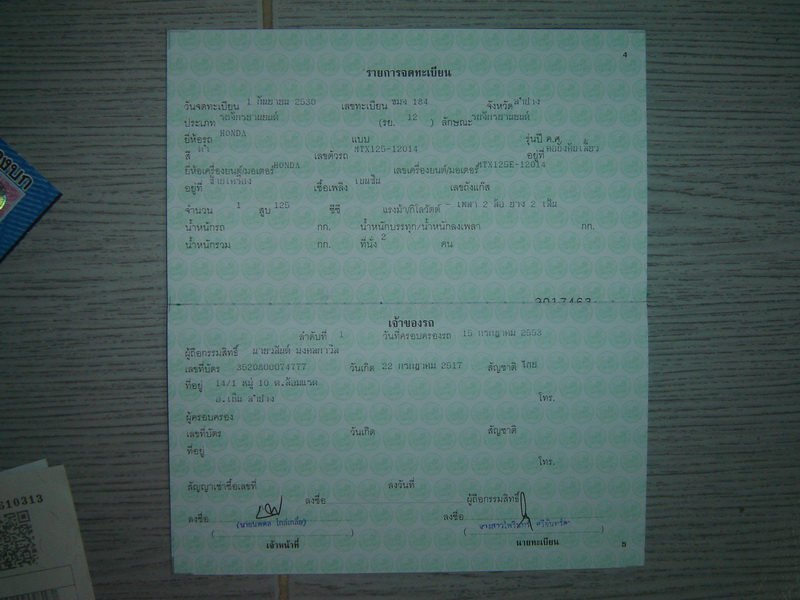 4
รายการจดทะเบียน
วันจดทะเบียน 1 กันยายน 2530 เลขทะเบียน 184 จังหวัด ลำปาง
ประเภท รถจักรยานยนต์ (รย. 12 ) ลักษณะ รถจักรยานยนต์
ยี่ห้อรถ HONDA แบบ รุ่นปี ค.ศ.
สี ดำ เลขตัวรถ MTX125-12014 อยู่ที่
ยี่ห้อเครื่องยนต์/มอเตอร์ HONDA เลขเครื่องยนต์/มอเตอร์ MTX125E-12014
อยู่ที่ เชื้อเพลิง เบนซิน เลขถังแก๊ส
จำนวน 1 สูบ 125 ซีซี แรงม้า/กิโลวัตต์ - เพลา 2 ล้อ ยาง 2 เส้น
น้ำหนักรถ กก. น้ำหนักบรรทุก/น้ำหนักลงเพลา กก.
น้ำหนักรวม กก. ที่นั่ง 2 คน
เจ้าของรถ
ลำดับที่ 1 วันที่ครอบครองรถ 15 กรกฎาคม 2553
ผู้ถือกรรมสิทธิ์ นาย
เลขที่บัตร 3520800074777 วันเกิด 22 กรกฎาคม 2517 สัญชาติ ไทย
ที่อยู่ 14/1 หมู่ 10 ต.ล้อมแรด
อ.เถิน ลำปาง โทร.
ผู้ครอบครอง
เลขที่บัตร วันเกิด สัญชาติ
ที่อยู่
โทร.
สัญญาเช่าซื้อเลขที่ ลงวันที่
ลงชื่อ ผู้ถือกรรมสิทธิ์
ลงชื่อ ลงชื่อ
เจ้าหน้าที่ นายทะเบียน
5
610313